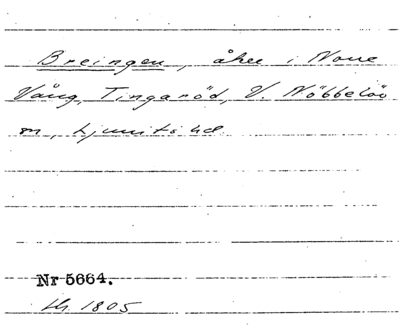 Breingen, åker i Norre
Vång, Tinganöd, V. Nöbbelöv
sn, Ljunits hd.
Nr 5664.
th 1805